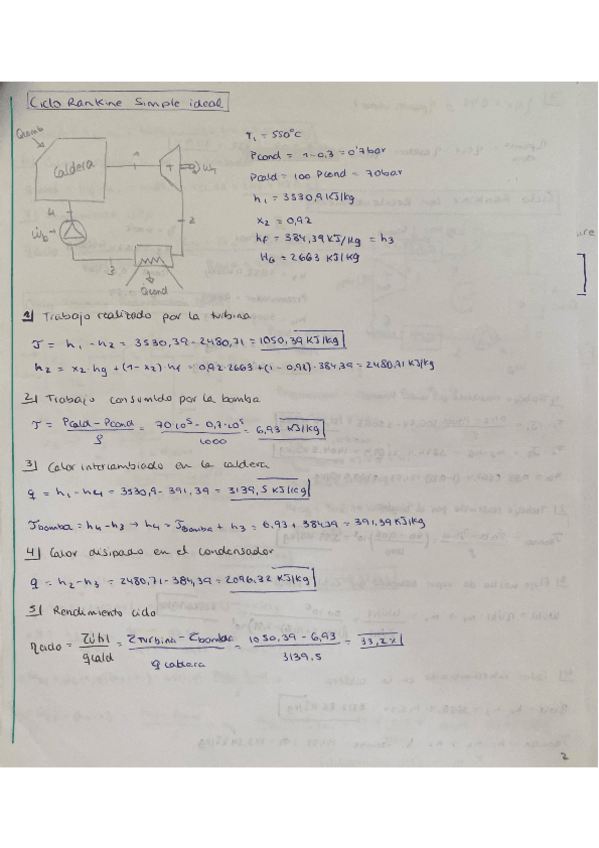 Ciclo Rankine Simple ideal
Qcomb
Caldera
1
T
ẇt
4
ẇb
2
3
Qcond
T1 = 550°C
Pcond = 1-0,3 = 0'7bar
Pcald = 100 Pcond = 70bar
h1 = 3530,9 KJ/kg
x2 = 0,92
hf = 384,39 KJ/kg = h3
HG = 2663 KJ/kg
1) Trabajo realizado por la turbina
J = h1 - h2 = 3530,39 - 2480,71 = 1050,39 KJ/kg
h2 = x2 · hg + (1-x2) · hf = 0,92 · 2663 + (1-0,92) · 384,39 = 2480,71 KJ/kg
2) Trabajo consumido por la bomba
J = Pcald - Pcond / ρ = 70·10⁵ - 0,7·10⁵ / 1000 = 6,93 KJ/kg
3) Calor intercambiado en la caldera
q = h1 - h4 = 3530,9 - 391,39 = 3139,5 KJ/kg
Jbomba = h4 - h3 → h4 = Jbomba + h3 = 6,93 + 384,39 = 391,39 KJ/kg
4) Calor disipado en el condensador
q = h2 - h3 = 2480,71 - 384,39 = 2096,32 KJ/kg
5) Rendimiento ciclo
ηciclo = τútil / qcald = τturbina - τbomba / qcaldera = 1050,39 - 6,93 / 3139,5 = 33,2%
2